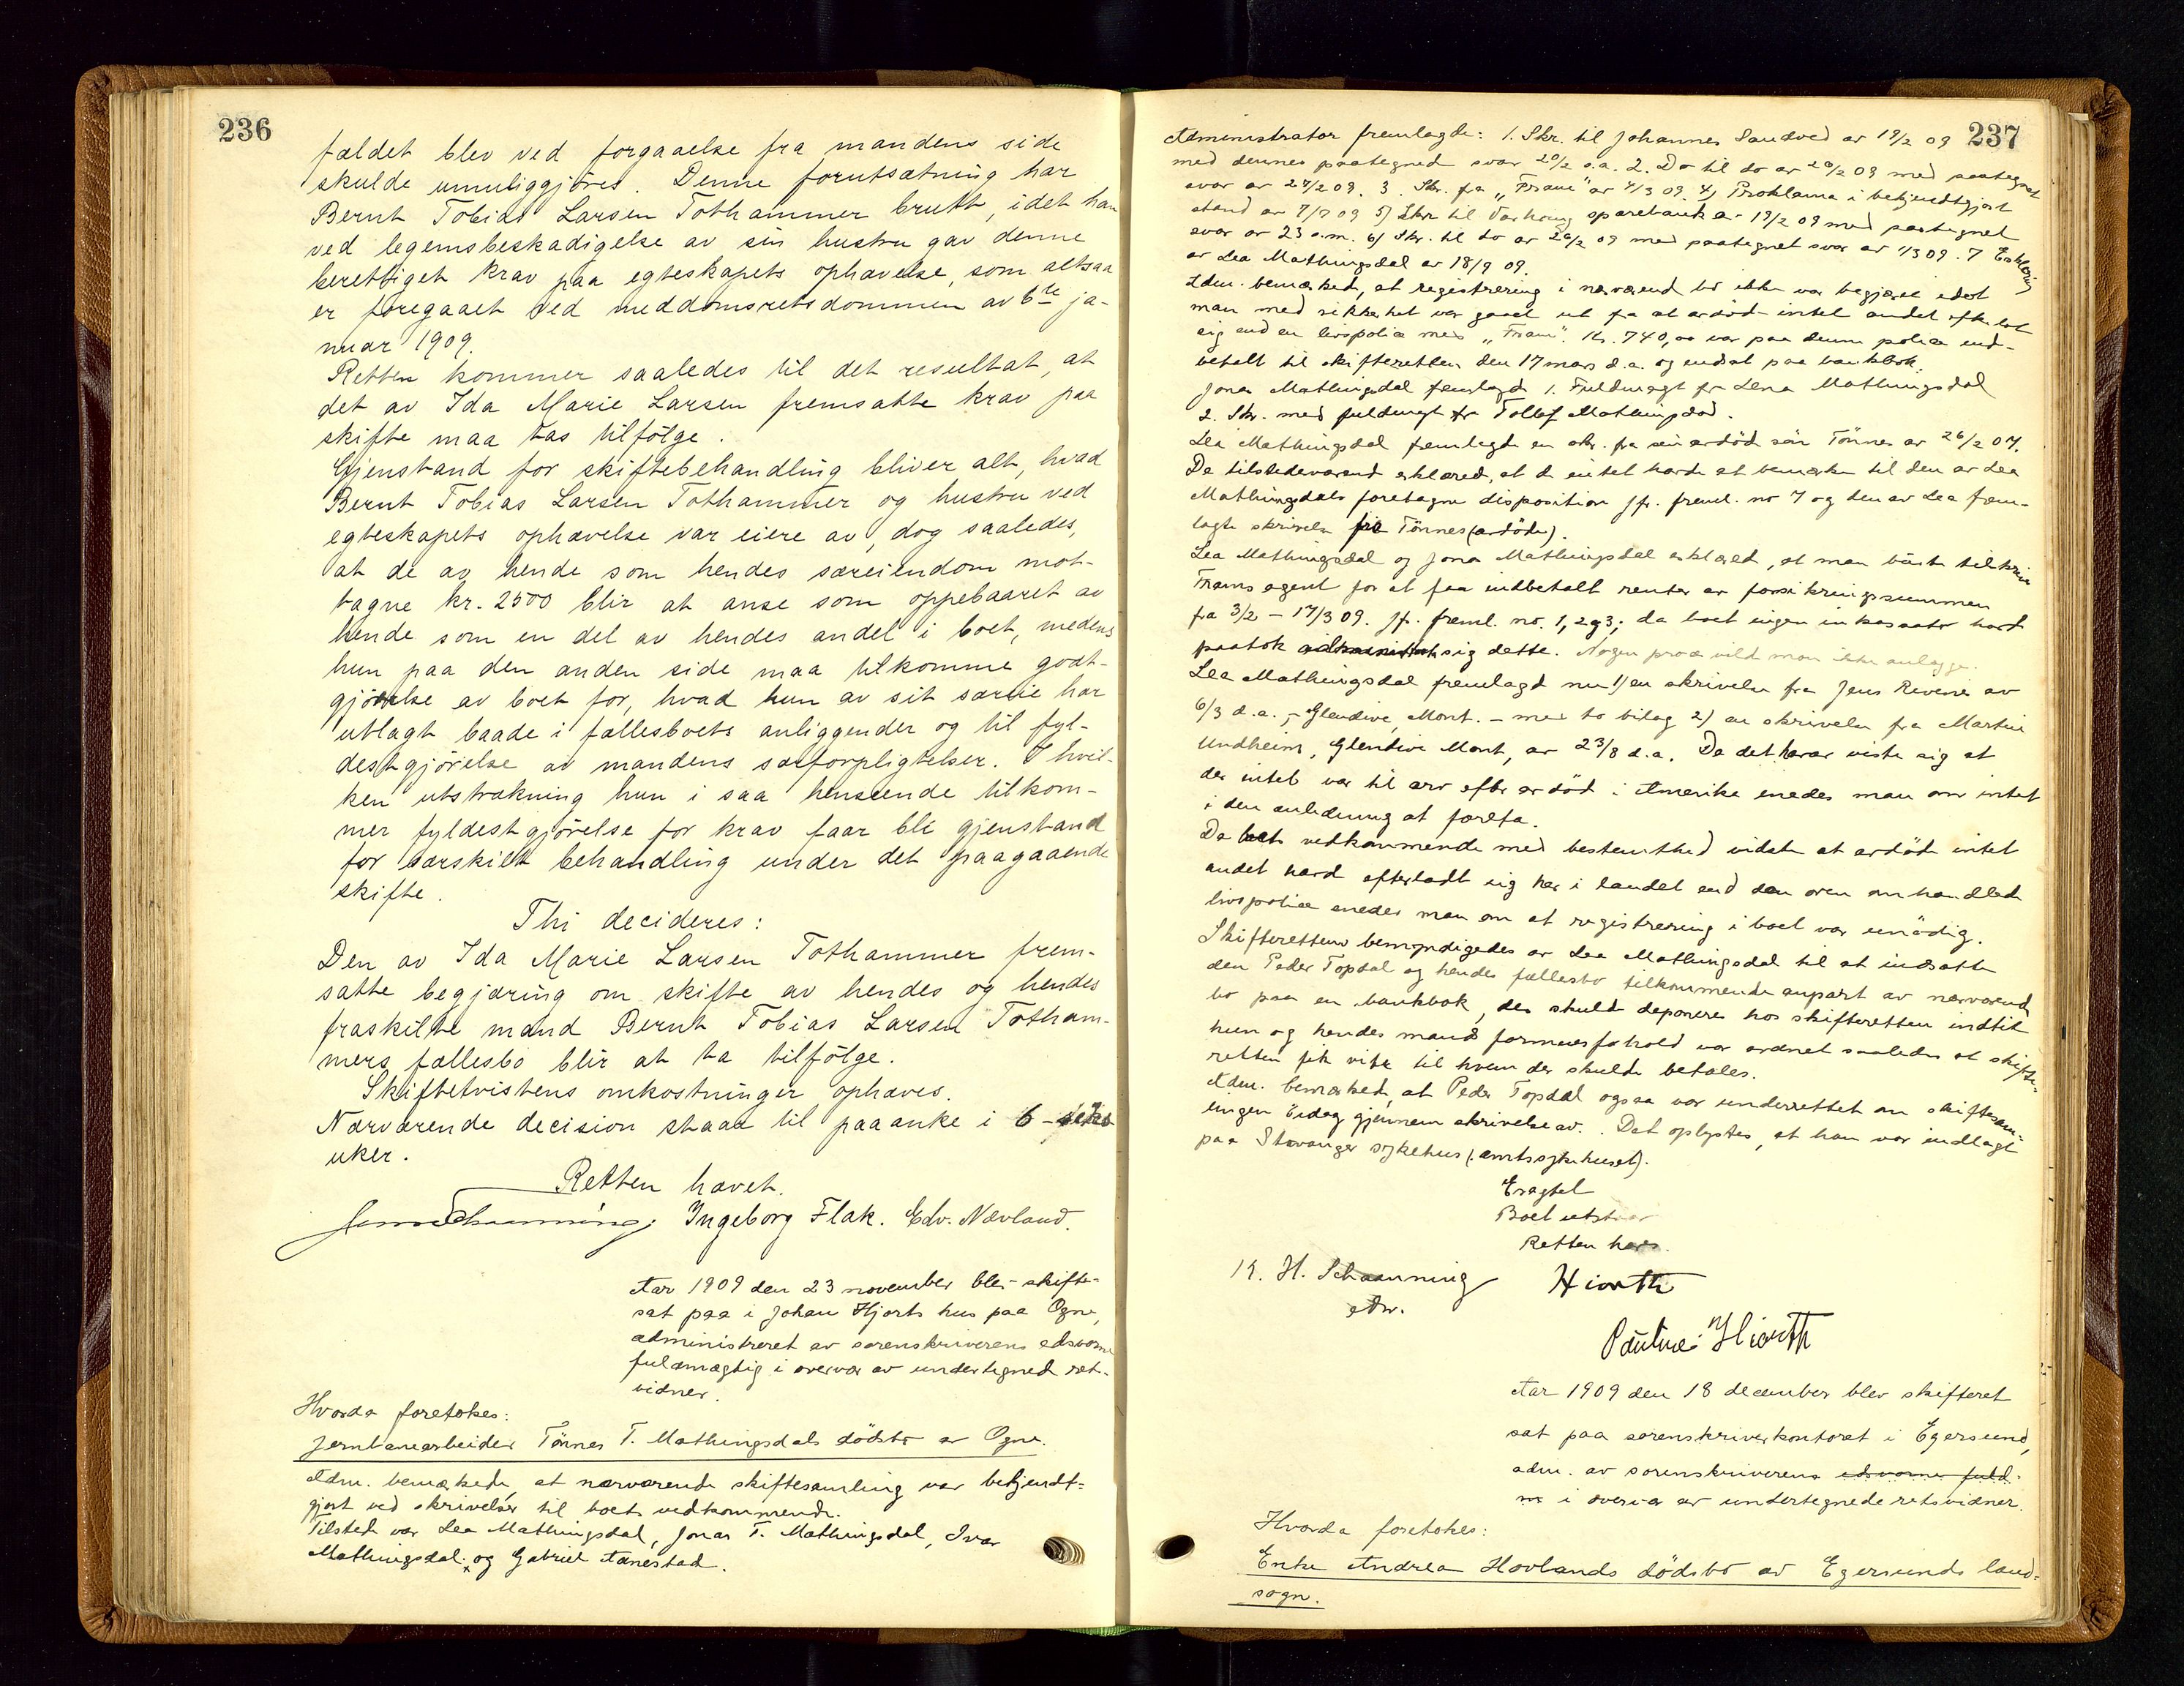 236
fældet blev ved forgaaelse fra mandens side
skulde umuliggjöres. Denne forutsætning har
Bernt Tobias Larsen Tothammer brutt, idet han
ved legemsbeskadigelse av sin hustru gav denne
berettiget krav paa egteskapets ophævelse, som altsaa
er foregaaet ved meddomsretsdommen av 6te ja-
nuar 1909.
Retten kommer saaledes til det resultat, at
det av Ida Marie Larsen fremsatte krav paa
skifte maa tas tilfölge.
Gjenstand for skiftebehandling bliver alt, hvad
Bernt Tobias Larsen Tothammer og hustru ved
egteskapets ophævelse var eiere av, dog saaledes,
at de av hende som hendes særeiendom mot-
tagne kr. 2500 blir at anse som oppebaaret av
hende som en del av hendes andel i boet, medens
hun paa den anden side maa tilkomme godt-
gjörelse av boet for, hvad hun av sit særeie har
utlagt baade i fællesboets anliggender og til fyl-
destgjörelse av mandens særforpligtelser. I hvil-
ken utstrækning hun i saa henseende tilkom-
mer fyldestgjörelse for krav faar bli gjenstand
for særskilt behandling under det paagaaende
skifte.
Thi decideres:
Den av Ida Marie Larsen Tothammer frem-
satte begjæring om skifte av hendes og hendes
fraskilte mand Bernt Tobias Larsen Totham-
mers fællesbo blir at ta tilfölge.
Skiftetvistens omkostninger ophæves.
Nærværende decision staar til paaanke i 6 - seks
uker.
Retten hævet.
Ingeborg Flak. Edv. Nævland.
Aar 1909 den 23 november blev skifte-
sat paa i Johan Hjorts hus paa Ogne,
administreret av sorenskriverens edsvorne
fuldmægtig i overvær av undertegnede ret-
vidner.
Hvorda foretokes:
Jernbanearbeider Tönnes T. Mathingsdals dödsbo av Ogne.
Adm. bemerkede, at nærværende skiftesamling var bekjendt-
gjort ved skrivelser til boets vedkommende.
Tilstede var Lea Mathingsdal, Jonas T. Mathingsdal, Ivar
Mathingsdal og Gabriel Aanestad.
237
Administrator fremlagde: 1. Skr. til Johannes Sandved av 19/2 09
med dennes paategnede svar 20/2 s.a. 2. Do til do av 20/2 09 med paategnet
svar av 24/2 09. 3. Skr. fra "Fram" av 4/3 09. 4) Proklama i bekjendtgjort
stand av 7/7 09 5) Skr til Varhaug sparebank av 19/2 09 med paategnet
svar av 23 s.m. 6) Skr. til do av 26/2 09 med paategnet svar av 1/3 09. 7 Erklæring
av Lea Mathingsdal av 18/9 09.
Adm. bemerked, at registrering i nærværende bo ikke var begjæret idet
man med sikkerhet var gaaet ut fra at avdöde intet andet efterlot
sig end en livspolice med "Fram". Kr. 740,00 var paa denne police ind-
betalt til skifteretten den 17 mars d.a. og indsat paa bankbok.
Jonas Mathingsdal fremlagde 1. Fuldmagt fra Lena Mathingsdal
2. Skr. med fuldmagt fra Tollef Mathingsdal.
Lea Mathingsdal fremlagde en skr. fra sin avdöde sön Tönnes av 26/2 07.
De tilstedeværende erklæred, at de intet hadde at bemerke til den av Lea
Mathingsdals foretagne disposition jfr. freml. no 7 og den av Lea frem-
lagte skrivelse fra Tönnes (avdöde).
Lea Mathingsdal og Jonas Mathingsdal erklæred, at man burde tilskrive
Frams agent for at faa indbetalt renter av forsikringssummen
fra 3/2 - 17/3 09. Jfr. freml. no. 1, 2 og 3; da boet ingen inkassator havde
paatok sig dette. Nogen proces vilde man ikke anlægge.
Lea Mathingsdal fremlagde nu 1) en skrivelse fra Jens Revene av
6/3 d.a., - Glendive, Mont. - med to bilag 2) en skrivelse fra Martin
Undheim, Glendive Mont, av 23/8 d.a. Da det herav viste sig at
der intet var til arv efter avdöd i Amerika enedes man om intet
i den anledning at foreta.
Da boets vedkommende med bestemthed vidste at avdöde intet
andet havde efterladt sig her i landet end den oven omhandlede
livspolice enedes man om at registrering i boet var unödig.
Skifteretten bemyndigedes av Lea Mathingsdal til at indsætte
den Peder Topdal og hendes fællesbo tilkommende anpart av nærværende
bo paa en bankbok, der skulde deponeres hos skifteretten indtil
hun og hendes mands formuesforhold var ordnet saaledes at skifte-
retten fik vite til hvem der skulde betales.
Adm. bemerked, at Peder Topdal ogsaa var underrettet om skiftesam-
lingen idag gjennem skrivelse av. Det oplystes, at han var indlagt
paa Stavanger sykehus (amtssykehuset).
Eragtet
Boet utstaar
Retten hævet.
K. H. Schanning Hiorth
edsv.
Pauline Hiorth
Aar 1909 den 18 december blev skifteret
sat paa sorenskriverkontoret i Egersund,
adm. av sorenskriverens edsvorne fuld-
m i overvær av undertegnede retsvidner.
Hvorda foretokes:
Enke Andrea Hovlands dödsbo av Egersunds land-
sogn.